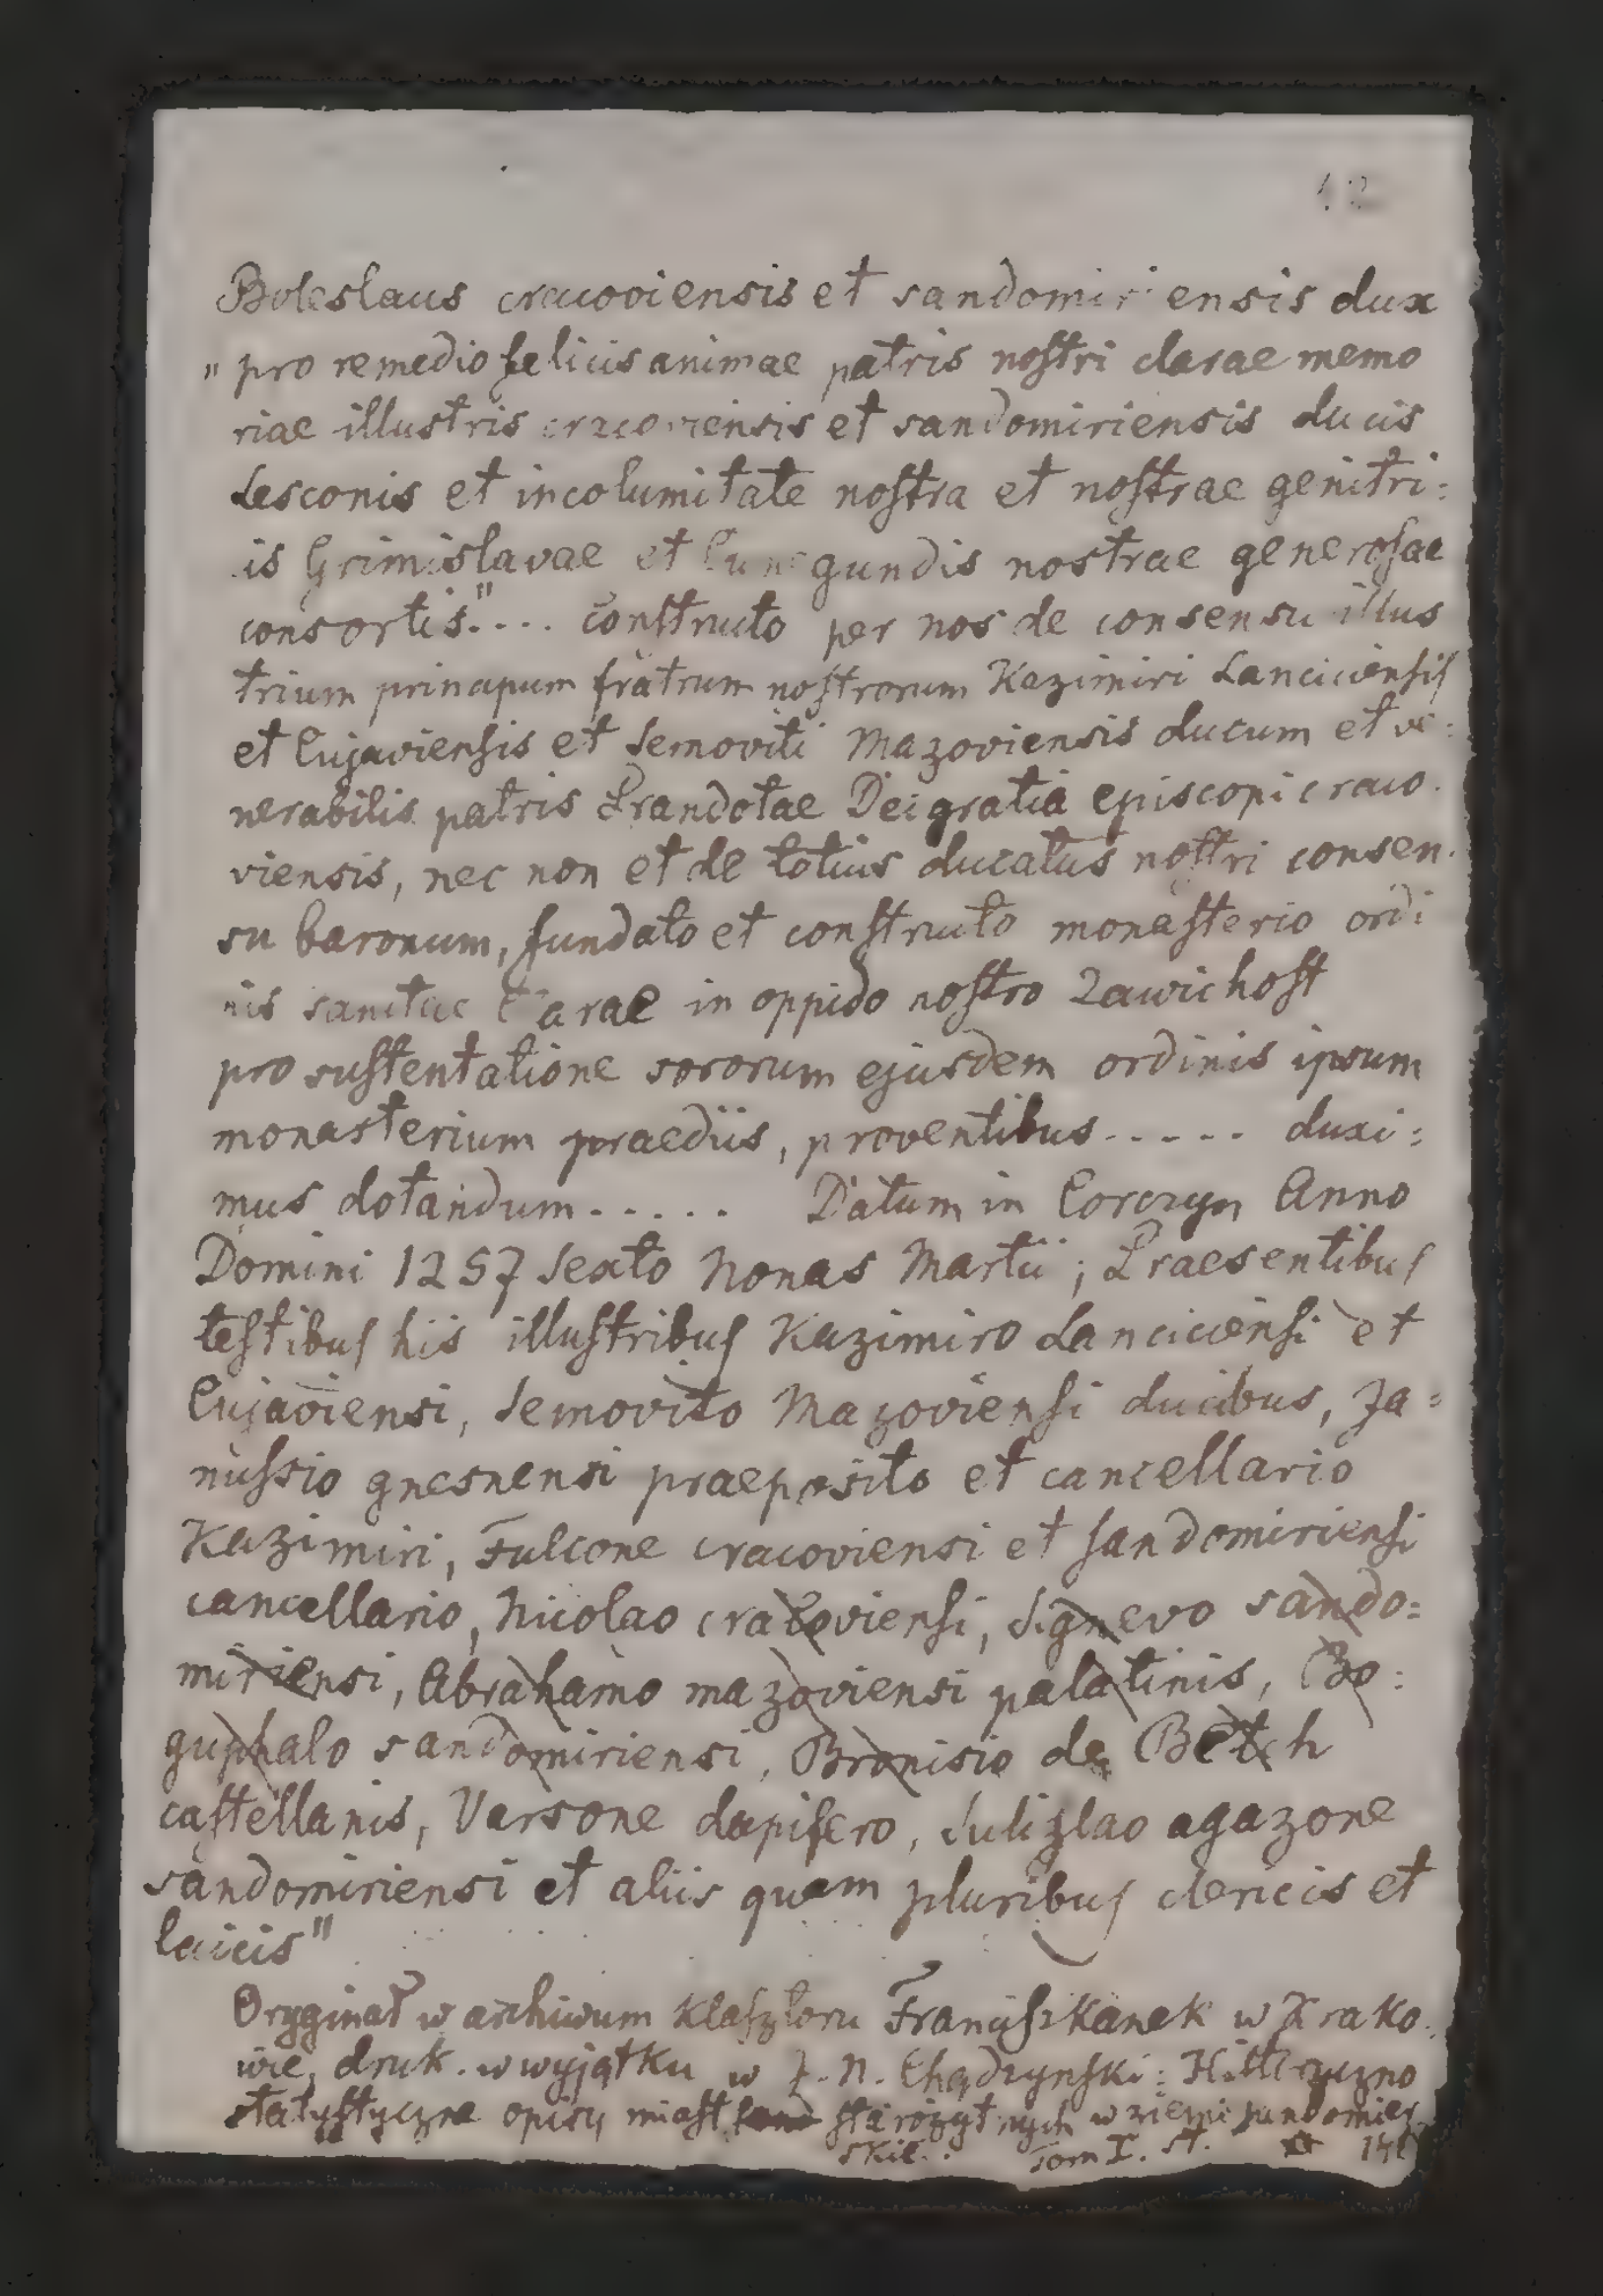 Boleslaus cracoviensis et sandomiriensis dux
„ pro remedio felicis animae patris nostri clarae memo
riae illustris cracoviensis et sandomiriensis ducis
Lesconis et incolumitate nostra et nostrae genitri:
cis Grimislavae et Cunegundis nostrae generosae
consortis." .... Constructo per nos de consensu illus
trium principum fratrum nostrorum Kazimiri Lanciciensis
et Cujaviensis et Semoviti Mazoviensis ducum et ve:
nerabilis patris Prandotae Dei gratia episcopi craco.
viensis, nec non et de totius ducatus nostri consen.
su baronum, fundato et constructo monasterio ordi
nis sanctae Clarae in oppido nostro Zawichost
pro sustentatione sororum ejusdem ordinis ipsum
monasterium praediis, proventibus ..... duxi:
mus dotandum ..... Datum in Corczyn Anno
Domini 1257 Sexto Nonas Martii; Praesentibus
testibus his illustribus Kazimiro Lanciciensi et
Cujaviensi, Semovito Mazoviensi ducibus, Ja=
nussio gnesnensi praeposito et cancellario
Kazimiri, Fulcone cracoviensi et sandomiriensi
cancellario, Nicolao cracoviensi, Signevo sando=
miriensi, Abrahamo mazoviensi palatinis, Bo:
guphalo sandomiriensi, Bronisio de Betch
castellanis, Varsone dapifero, Sulizlao agazone
sandomiriensi et aliis quam pluribus clericis et
laicis"
Oryginał w archiwum Klasztoru Franciszkanek w Krako.
wie, druk. w wyjątku w J. N. Chądzynski: Historyczno
statystyczne opisy miast starożytnych w ziemi sandomier
skie.. Tom I. st.